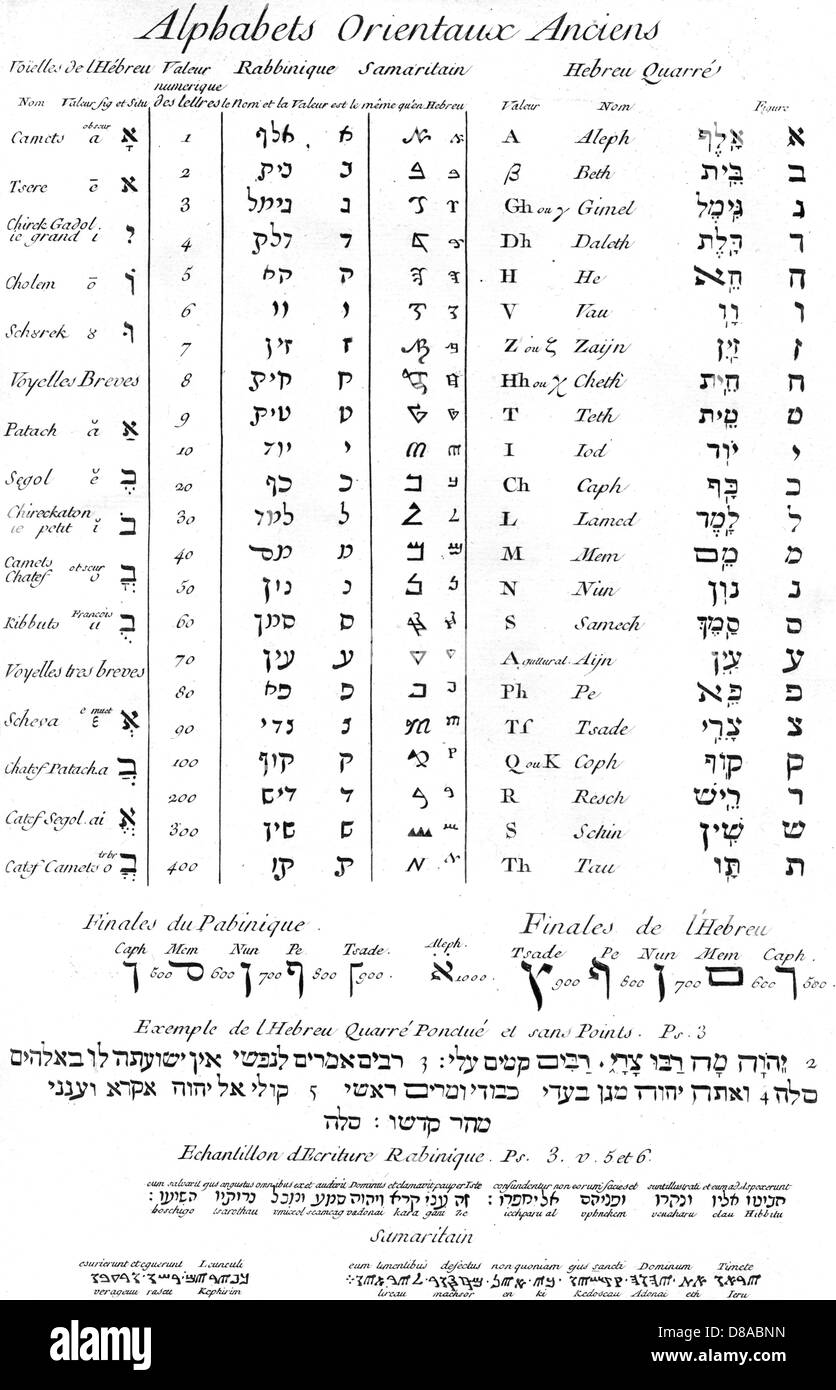 Alphabets Orientaux Anciens
Voielles de l'Hébreu Valeur numerique des lettres Rabbinique Samaritain Hebreu Quarré
Nom Valeur fig et Situ le Nom et la Valeur est le même qu'en Hebreu Valeur Nom Figure
Camets obscur a אָ 1 אלף א A Aleph אָלֶף א
2 בית ב β Beth בֵּית ב
Tsere ē א
3 גימל ג Gh ou γ Gimel גִּימֶל ג
Chirek Gadol
ie grand i
4 דלת ד Dh Daleth דָּלֶת ד
5 הא ה H He הֵא ה
Cholem ō
6 וו ו V Vau וָו ו
Schurek 8
7 זין ז Z ou ζ Zaijn זַיִן ז
Voyelles Breves 8 חית ח Hh ou χ Cheth חֵית ח
9 טית ט T Teth טֵית ט
Patach ă אַ
10 יוד י I Iod יוֹד י
Segol ĕ בֶ
20 כף כ Ch Caph כַּף כ
Chireckaton
ie petit ĭ בִ
30 למד ל L Lamed לָמֶד ל
40 מם מ M Mem מֵם מ
Camets Chatef obscur o
50 נון נ N Nun נוּן נ
Kibbuts François u בֻ 60 סמך ס S Samech סָמֶךְ ס
70 עין ע A guttural. Aijn עַיִן ע
Voyelles tres breves
80 פא פ Ph Pe פֵּא פ
Scheva e muet אְ 90 צדי צ Ts Tsade צָדֵי צ
100 קוף ק Q ou K Coph קוֹף ק
Chatef Patach.a
200 ריש ר R Resch רֵישׁ ר
Catef Segol. ai אֱ 300 שין ש S Schin שִׁין ש
Catef Camets o 400 תו ת Th Tau תָּו ת
Finales du Pabinique. Finales de l'Hebreu
Caph Mem Nun Pe Tsade. Aleph. Tsade Pe Nun Mem Caph.
ך 500 ם 600 ן 700 ף 800 ץ 900. א 1000. ץ 900 ף 800 ן 700 ם 600 ך 500.
Exemple de l'Hebreu Quarré Ponctué et sans Points. Ps. 3
2 יְהוָֹה מָה רַבּוּ צָרָי, רַבִּים קמים עלי: 3 רבים אמרים לנפשי אין ישועתה לו באלהים
סלה 4 ואתה יהוה מגן בעדי כבודי ומרים ראשי 5 קולי אל יהוה אקרא ויענני
מהר קדשו: סלה
Echantillon d'Ecriture Rabinique. Ps. 3. v. 5 et 6.
eum salvavit ejus angustus omnibus ex et audivit Dominus et clamavit pauper Iste confundentur non eorum facies et sunt illustrati et eum ad aspexerunt
הביטו אליו ונהרו ופניהם אל יחפרו: זה עני קרא ויהוה שמע ומכל צרותיו הושיעו:
boschigo tsarothau vmiccol scamcag vadonai kara gani Ze iechparu al vphnehem venaharu elau Hibbitu
Samaritain
esurierunt et eguerunt Leunculi eum timentibus defectus non quoniam ejus sancti Dominum Timete
veragevu rascu Kephirim lireau machsor en ki Kedoscau Adonai eth Ieru
alamy
Image ID: D8ABNN
www.alamy.com